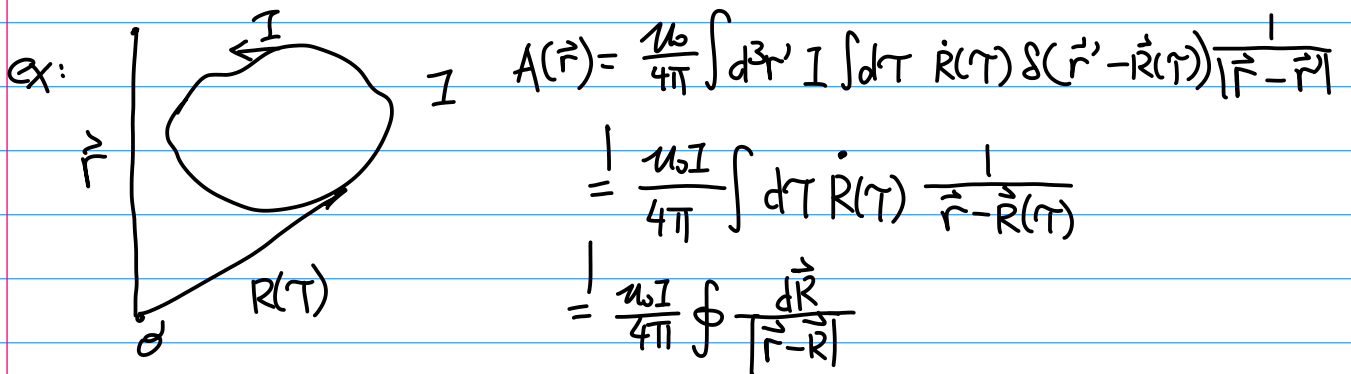 ex:
I
I
r⃗
R(τ)
O
A(r⃗) = μ₀/4π ∫ d³r' I ∫ dτ Ṙ(τ) δ(r⃗' − R⃗(τ)) 1/|r⃗ − r⃗'|
= μ₀I/4π ∫ dτ Ṙ(τ) 1/(r⃗ − R⃗(τ))
= μ₀I/4π ∮ dR⃗/|r⃗ − R⃗|